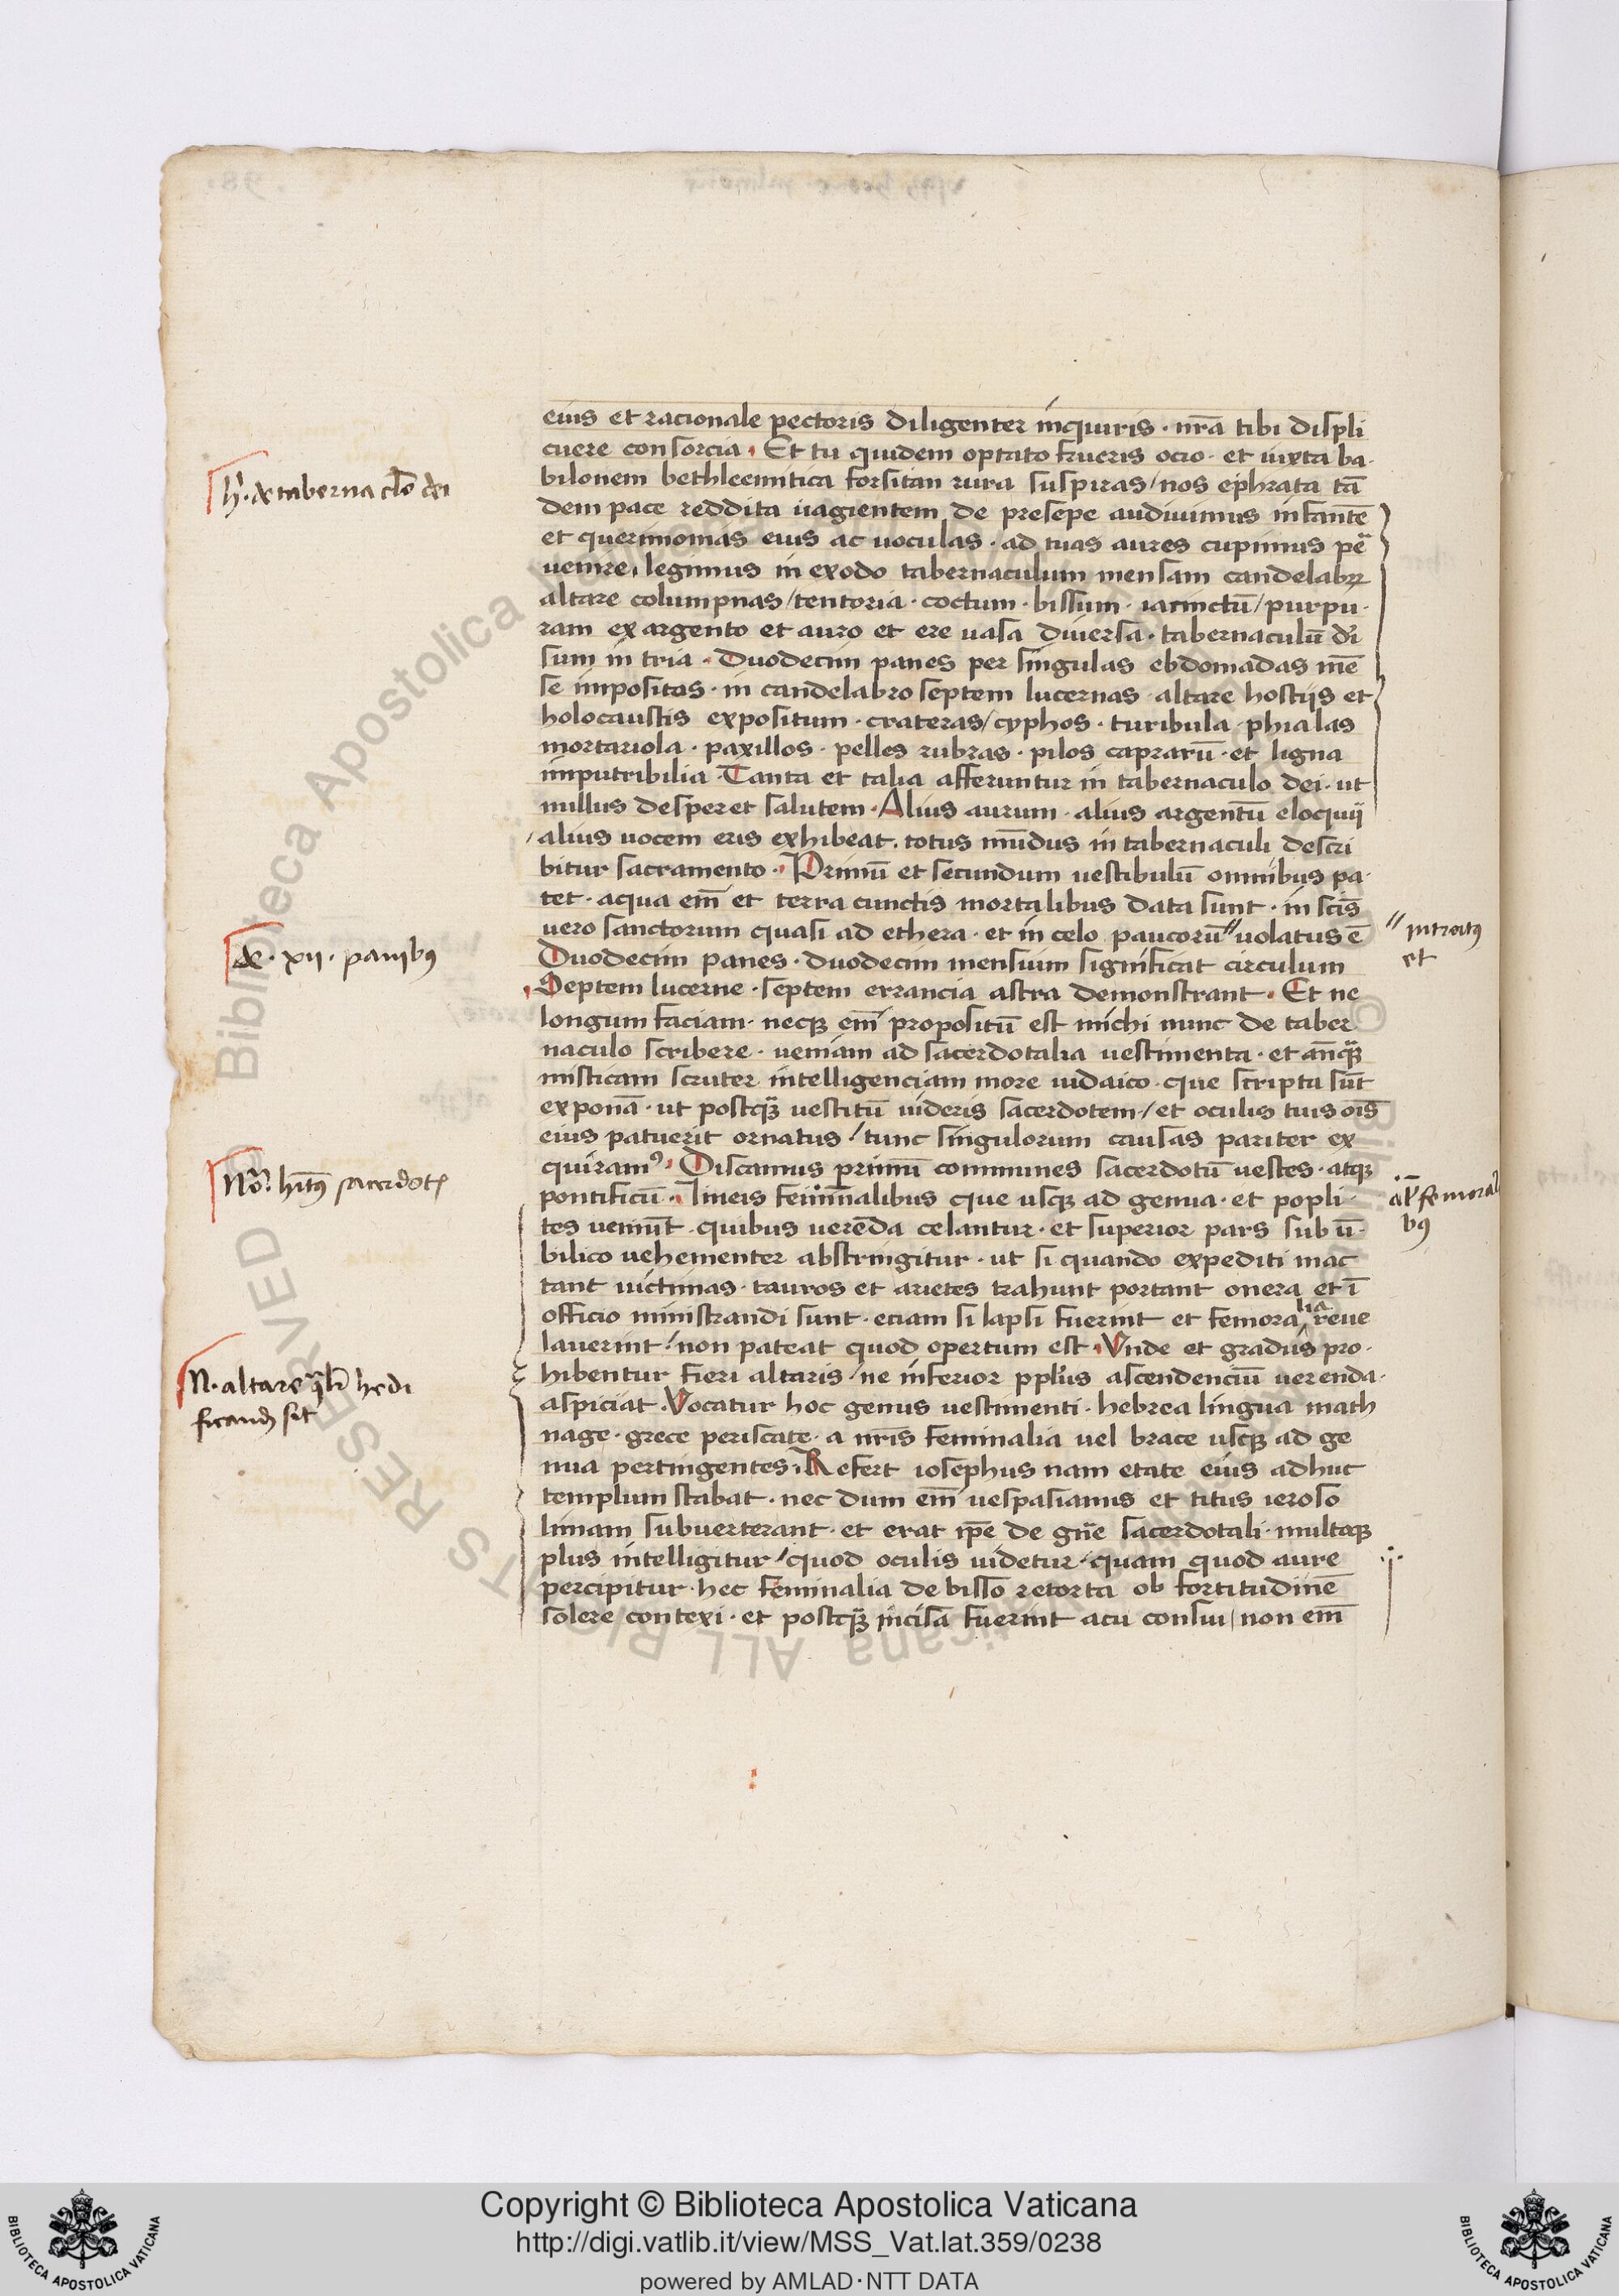 eius et racionale pectoris diligenter inquiris · nr̄a tibi displi
cuere consorcia · Et tu quidem optato frueris ocio · et iuxta ba·
bilonem bethleemitica forsitan rura suspiras / nos ephrata tā
dem pace reddita uagientem de presepe audiuimus infantē
et querimonias eius ac uoculas · ad tuas aures cupimus per̄
uenire · legimus in exodo tabernaculum mensam candelabꝝ
altare columpnas / tentoria · coctum · bissum · iacinctū / purpu·
ram ex argento et auro et ere uasa diuersa · tabernaculū di
sum in tria · Duodecim panes per singulas ebdomadas mē
se impositos · in candelabro septem lucernas altare hostijs et
holocaustis expositum · crateras / cyphos · turibula · phialas
mortariola · paxillos · pelles rubras · pilos caprarū · et ligna
imputribilia · Tanta et talia afferuntur in tabernaculo dei · ut
nullus desperet salutem · Alius aurum · alius argentū eloquij
/ alius uocem eris exhibeat · totus mūdus in tabernaculi descri
bitur sacramento · Primū et secundum uestibulū omnibus pa·
tet · aqua em̄ et terra cunctis mortalibus data sunt · in scīs
uero sanctorum quasi ad ethera · et in celo paucorū // uolatus ē
// introitꝰ
et
Duodecim panes · duodecim mensium significat circulum
Septem lucerne · septem errancia astra demonstrant · Et ne
longum faciam · neqꝫ em̄ propositū est michi nunc de taber
naculo scribere · ueniam ad sacerdotalia uestimenta · et anq̄ꝫ
misticam scruter intelligenciam more iudaico · que scripta sūt
exponā · ut postq̄ꝫ uestitū uideris sacerdotem / et oculis tuis oīs
eius patuerit ornatus / tunc singulorum causas pariter ex
quiramꝰ · Discamus primū communes sacerdotū uestes · atqꝫ
pontificū · lineis feminalibus que usqꝫ ad genua · et popli·
al' femorali
bꝰ
tes ueniūt · quibus uerēda celantur · et superior pars sub ū·
bilico uehementer abstringitur · ut si quando expediti mac
tant uictimas · tauros et arietes trahunt portant onera et ī
officio ministrandi sunt · eciam si lapsi fuerint et femoralia reue
lauerint / non pateat quod opertum est · Vnde et gradus pro·
hibentur fieri altaris / ne inferior ppl'us ascendenciū uerenda·
aspiciat · Vocatur hoc genus uestimenti · hebrea lingua math
nage · grece periscate · a nr̄is feminalia uel brace usqꝫ ad ge
nua pertingentes · Refert iosephus nam etate eius adhuc
templum stabat · nec dum em̄ uespasianus et titus ieroso
limam subuerterant · et erat ip̄e de gn̄e sacerdotali · multaqꝫ
plus intelligitur / quod oculis uidetur / quam quod aure
percipitur · hec feminalia de bisso retorta ob fortitudinē
solere contexi · et postq̄ꝫ incisa fuerint acu consui / non em̄
de tabernaclo dei
de · xij · panibꝰ
No. hītꝰ sacerdotꝭ
N. altare qual'r hedi
ficandꝫ sit
Copyright © Biblioteca Apostolica Vaticana
http://digi.vatlib.it/view/MSS_Vat.lat.359/0238
powered by AMLAD·NTT DATA
BIBLIOTECA APOSTOLICA VATICANA
BIBLIOTECA APOSTOLICA VATICANA